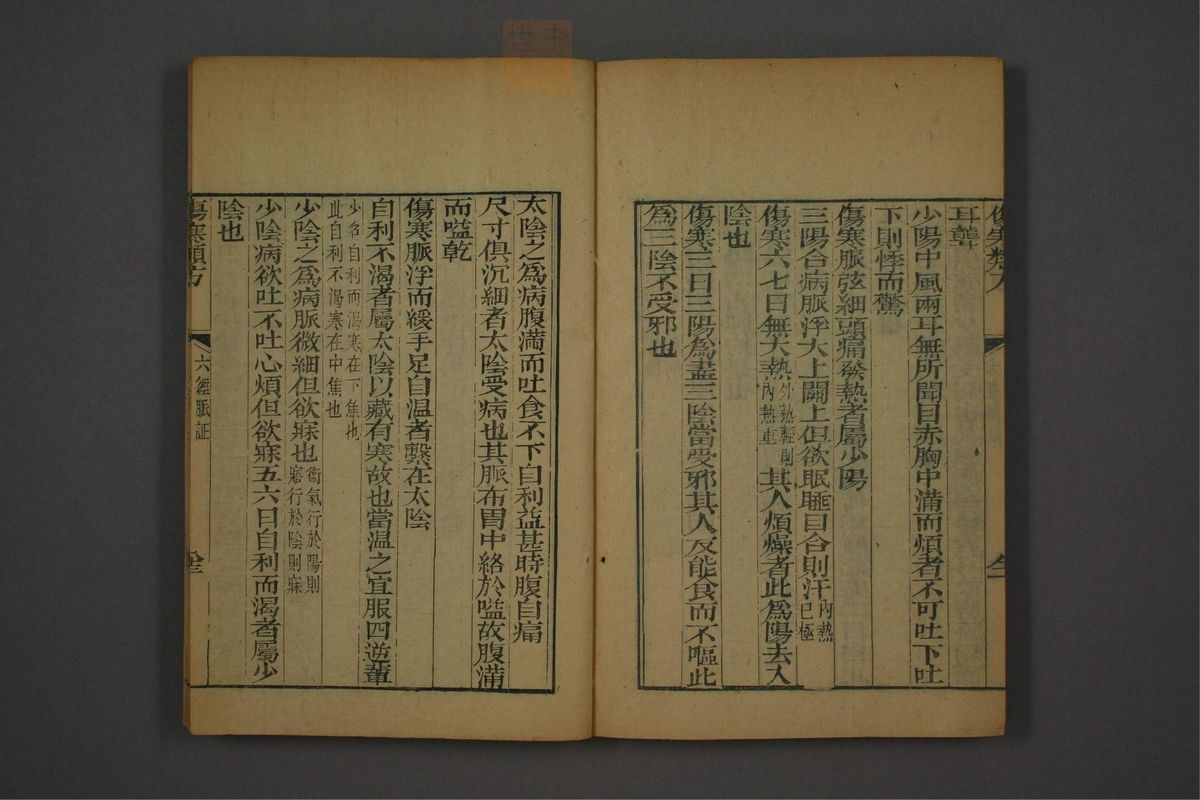 耳聾
少陽中風兩耳無所聞目赤胸中滿而煩者不可吐下吐
下則悸而驚
傷寒脈弦細頭痛發熱者屬少陽
三陽合病脈浮大上關上但欲眠睡目合則汗內熱已極
傷寒六七日無大熱外熱輕則內熱重其人煩燥者此爲陽去入
陰也
傷寒三日三陽爲盡三陰當受邪其人反能食而不嘔此
爲三陰不受邪也
太陰之爲病腹滿而吐食不下自利益甚時腹自痛
尺寸俱沉細者太陰受病也其脈布胃中絡於嗌故腹滿
而嗌乾
傷寒脈浮而緩手足自温者繫在太陰
自利不渴者屬太陰以藏有寒故也當温之宜服四逆輩
少名自利而渴寒在下焦也
此自利不渴寒在中焦也
少陰之爲病脈微細但欲寐也衛氣行於陽則寤行於陰則寐
少陰病欲吐不吐心煩但欲寐五六日自利而渴者屬少
陰也
傷寒類方
六經脈証